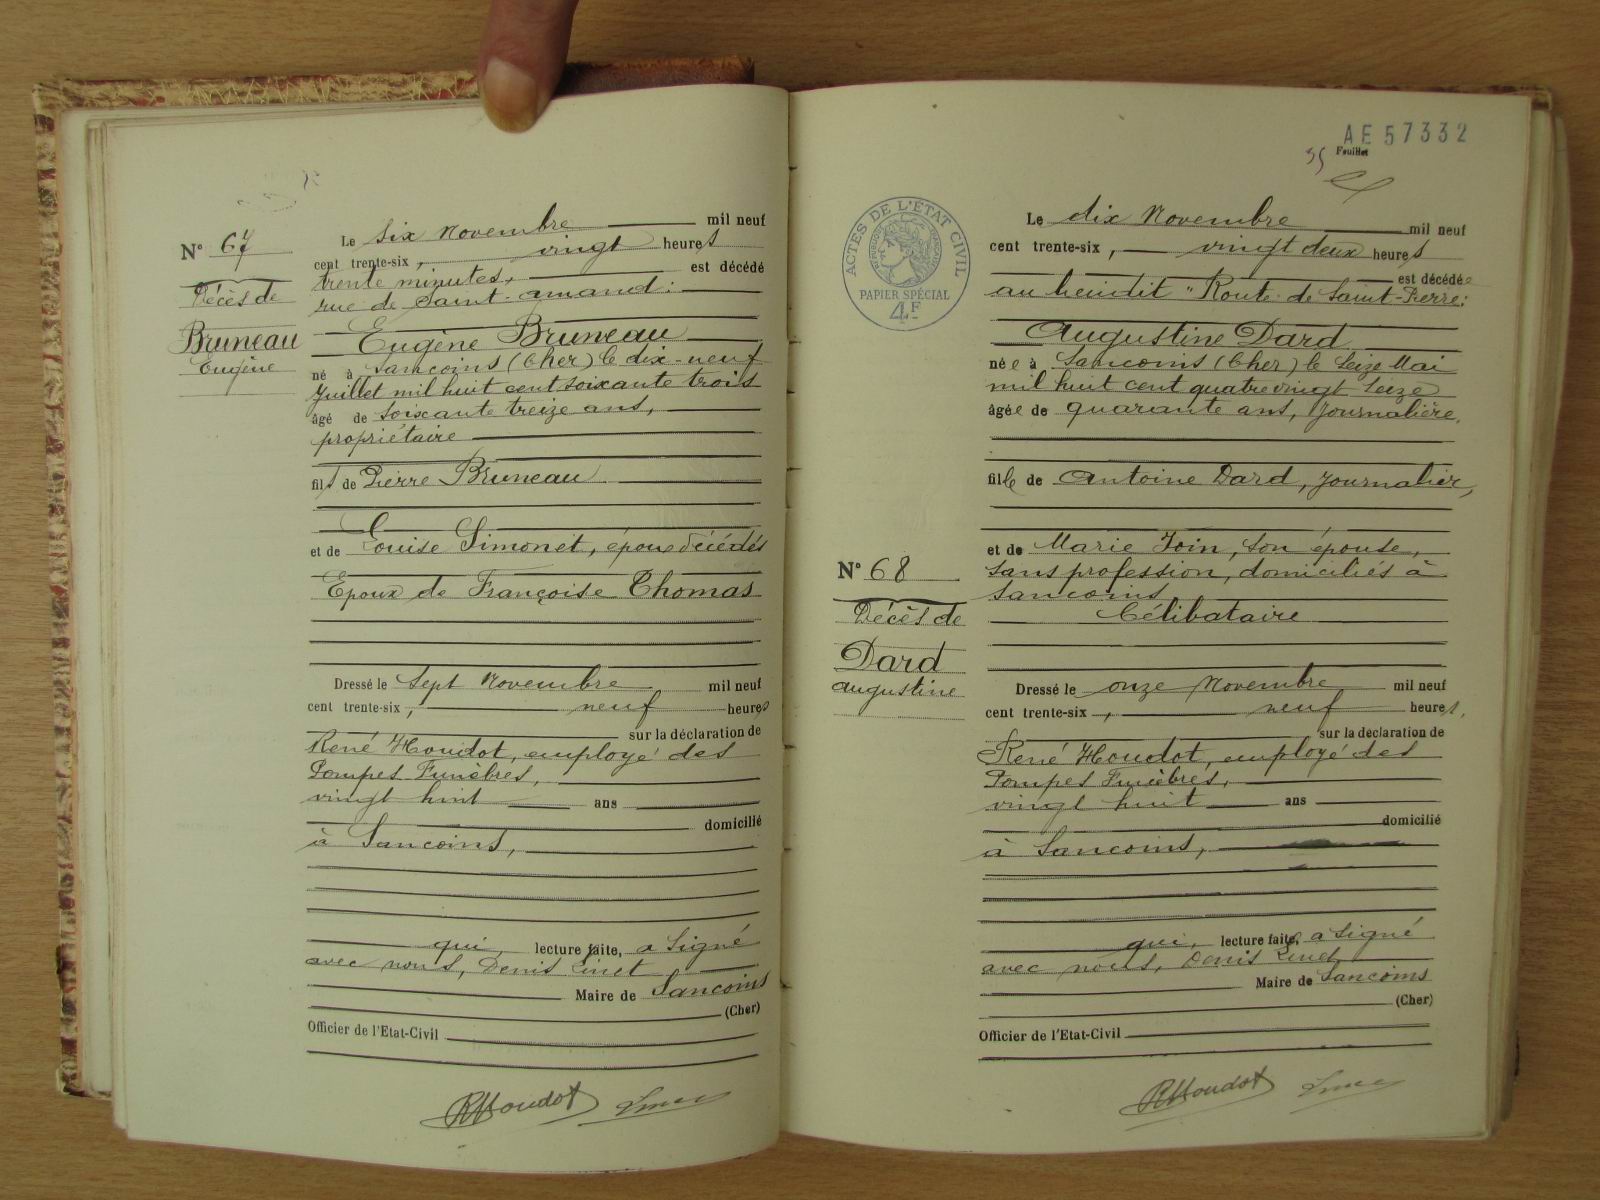 N° 67
Décès de
Bruneau
Eugène
Le six Novembre mil neuf
cent trente-six, vingt heures
trente minutes, est décédé
rue de Saint-Amand:
Eugène Bruneau
né à Sancoins (Cher) le dix-neuf
Juillet mil huit cent soixante trois
âgé de soixante treize ans,
propriétaire
fils de Pierre Bruneau
et de Louise Simonet, époux décédés
Epoux de Françoise Thomas
Dressé le sept Novembre mil neuf
cent trente-six, neuf heures
sur la déclaration de
René Houdot, employé des
Pompes Funèbres,
vingt huit ans
domicilié
à Sancoins,
qui, lecture faite, a signé
avec nous, Denis Linet
Maire de Sancoins
(Cher)
Officier de l'Etat-Civil
RHoudot Linet
AE 57332
35 Feuillet
ACTES DE L'ETAT CIVIL
REPUBLIQUE FRANÇAISE
PAPIER SPÉCIAL
4F
N° 68
Décès de
Dard
Augustine
Le dix Novembre mil neuf
cent trente-six, vingt deux heures
est décédée
au lieudit "Route de Saint-Pierre:
Augustine Dard
née à Sancoins (Cher) le seize Mai
mil huit cent quatre vingt seize
âgée de quarante ans, journalière,
fille de Antoine Dard, journalier,
et de Marie Join, son épouse,
sans profession, domiciliés à
Sancoins
Célibataire
Dressé le onze Novembre mil neuf
cent trente-six, neuf heures,
sur la déclaration de
René Houdot, employé des
Pompes Funèbres,
vingt huit ans
domicilié
à Sancoins,
qui, lecture faite, a signé
avec nous, Denis Linet
Maire de Sancoins
(Cher)
Officier de l'Etat-Civil
RHoudot Linet